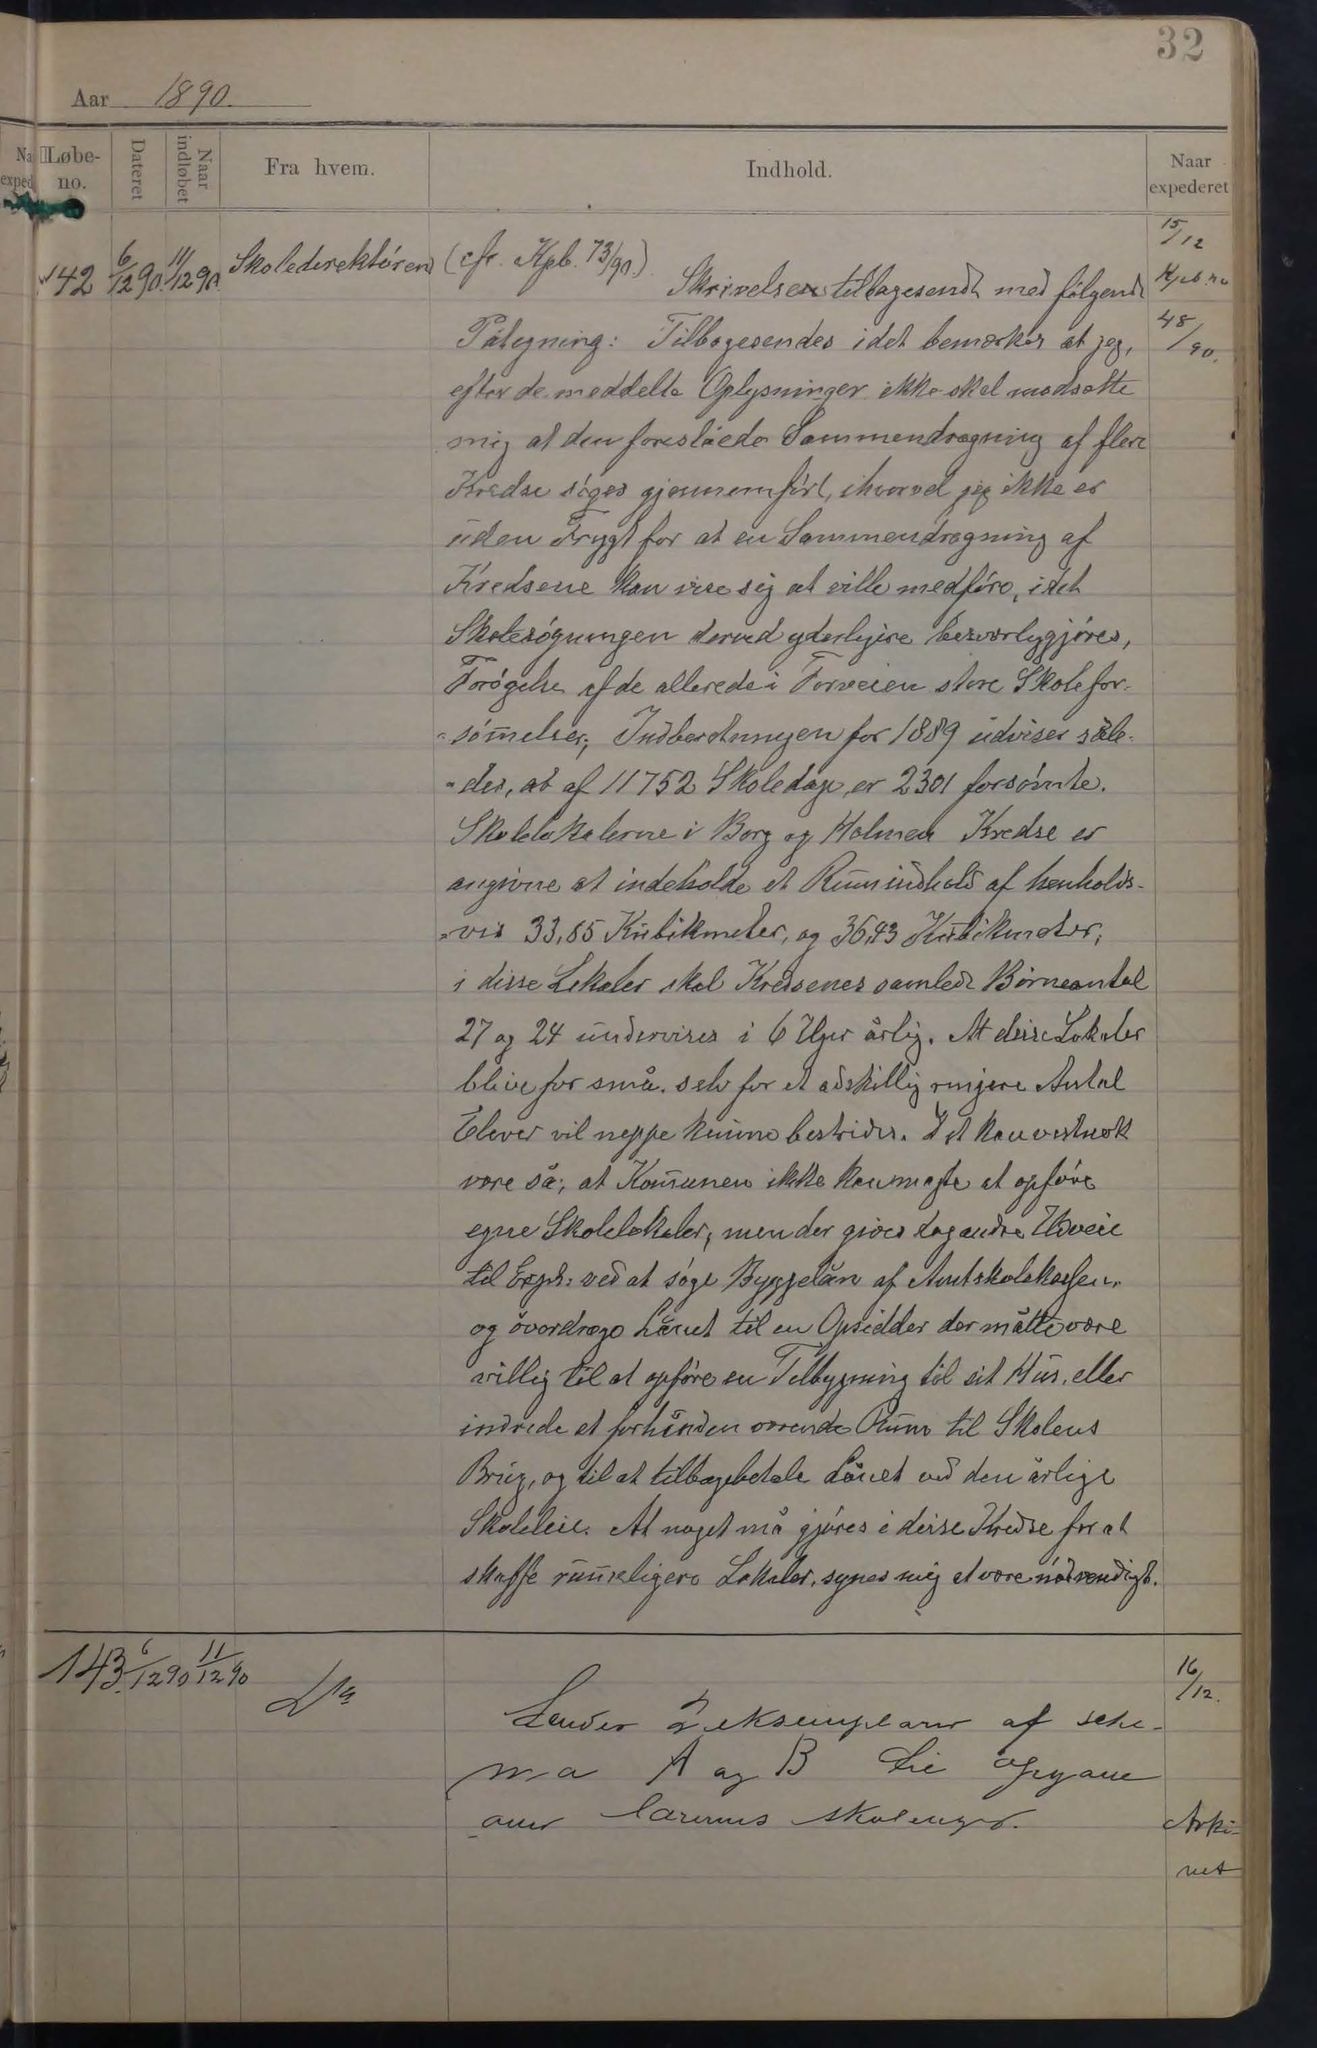 32
Aar 1890.
Løbe-no. Dateret Naar indløbet Fra hvem. Indhold. Naar expederet
142 6/12 90. 11/12 90. Skoledirektøren (cfr. Kpb. 73/90). 15/12
Skrivelsen tilbagesendt med følgende Kpb no
Påtegning: Tilbagesendes idet bemærkes at jeg, 48/90.
efter de meddelte Oplysninger ikke skal modsætte
mig at den foreslåede Sammendragning af flere
Kredse søges gjennemført, ihvorvel jeg ikke er
uden Frygt for at en Sammendragning af
Kredsene kan vise sig at ville medføre, idet
Skolesøgningen derved yderligere besværliggjøres,
Forøgelse af de allerede i Forveien store Skolefor-
sømmelser; Indberetningen for 1889 udviser såle-
des, at af 11752 Skoledage er 2301 forsømte.
Skolelokalerne i Borg og Holmen Kredse er
angivne at indeholde et Rumindhold af henholds-
vis 33,85 Kubikmeter, og 36,43 Kubikmeter;
i disse Lokaler skal Kredsenes samlede Børneantal
27 og 24 undervises i 6 Uger årlig. At disse Lokaler
blive for små selv for et adskillig ringere Antal
Elever vil neppe kunne bestrides. Det kan vistnok
være så, at Komunen ikke kan magte at opføre
egne Skolelokaler; men der gives dog andre Udveie
til Exph: ved at søge Byggelån af Amtskolekassen,
og overdrage Lånet til en Opsidder der måtte være
villig til at opføre en Tilbygning til sit Hus, eller
indrede et forhånden værende Rum til Skolens
Brug, og til at tilbagebetale Lånet ved den årlige
Skoleleie. At noget må gjøres i disse Kredse for at
skaffe rummeligere Lokaler, synes mig at være nødvendigt.
143. 6/12 90 11/12 90 16/12.
Sender 2 eksemplarer af sche-
ma A og B til
skolen Arki-
vet